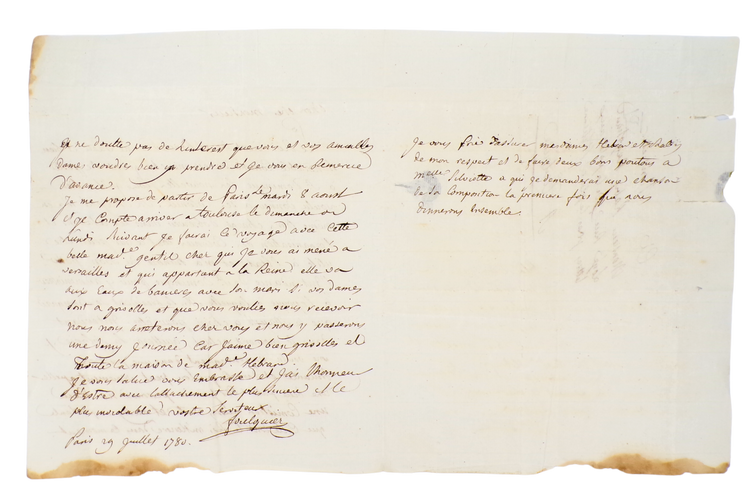 Je ne doutte pas de linterest que vous et vos aimables
dames voudres bien y prendre et je vous en remercie
d'avance.
Je me propose de partir de Paris le mardi 8 aoust
et je compte arriver a toulouse le dimanche ou
lundi suivant je fairai ce voyage avec cette
belle mad.e gentil cher qui je vous ai mené a
versailles et qui appartient a la Reine elle va
aux Eaux de banieres avec son mari si vos dames
sont a grisolles et que vous voulies nous recevoir
nous nous arreterons cher vous et nous y passerons
une demy journée car j'aime bien grisolles et
toute la maison de mad.e Hebrard.
je vous salue vous embrasse et j'ais lhonneur
d'estre avec lattachement le plus sincere et le
plus inviolable vostre serviteur
foulquier
Paris 29 juillet 1780.
Je vous prie d'assurer mesdames Hebrard et
de mon respect et de faire deux bons poutous a
melle Silvette a qui je demanderai une chanson
de sa composition la premiere fois que nous
dinnerons ensemble.